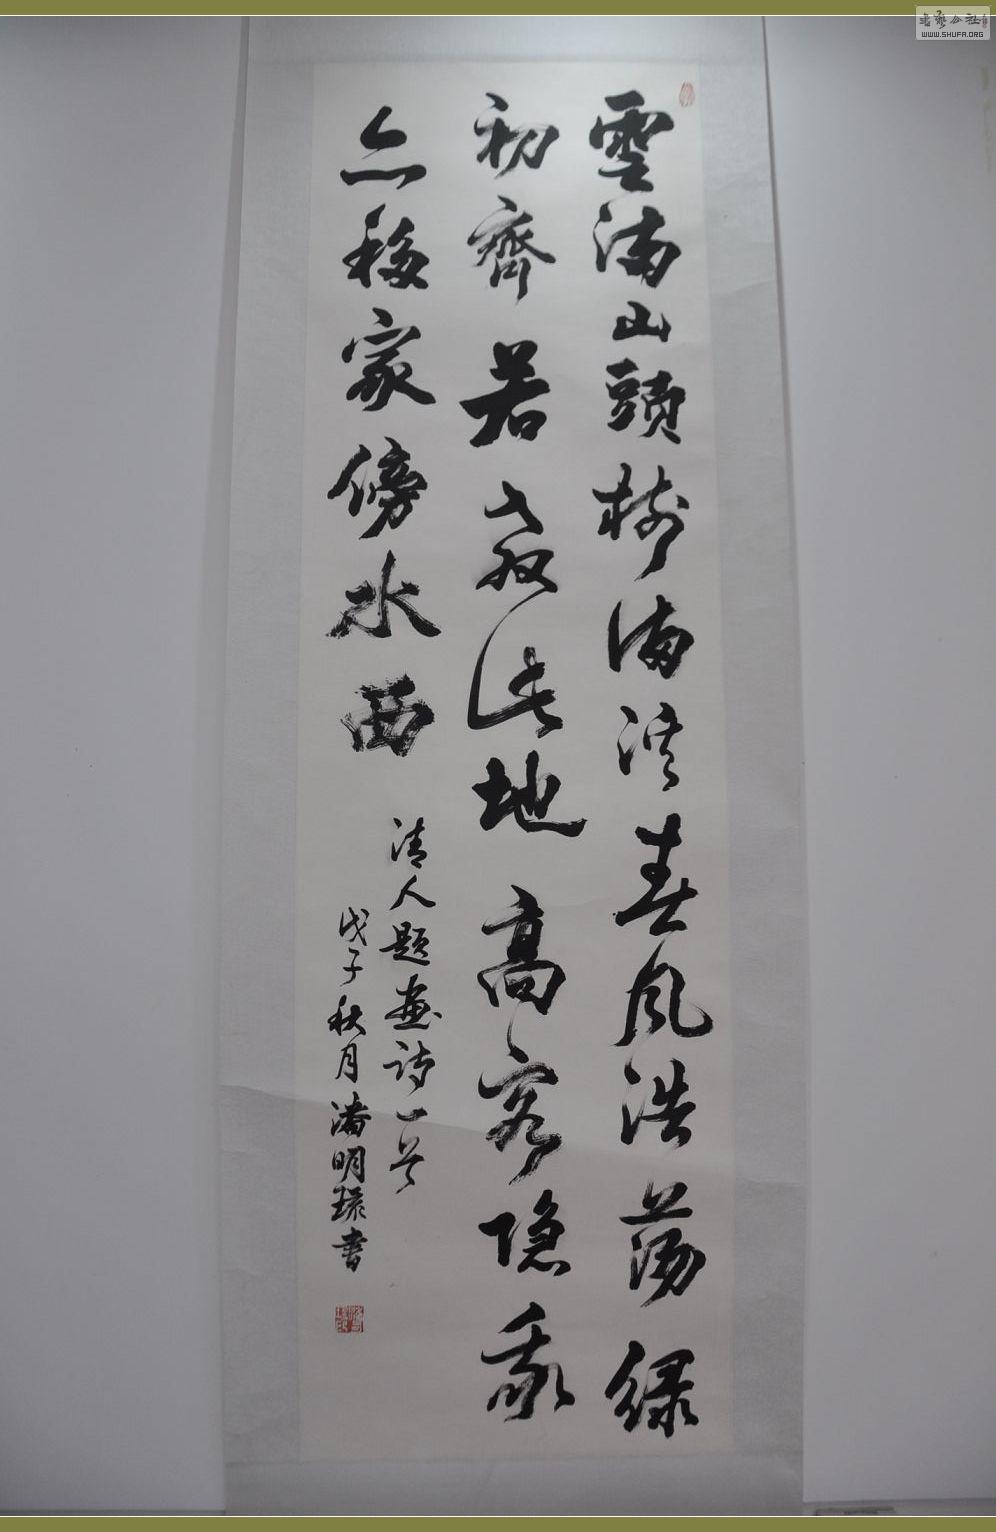 雲滿山頭樹滿溪春風浩蕩綠
初齊若教此地高容隐我
亦移家傍水西
清人题畫詩一首
戊子秋月潘明書
書藝公社
WWW.SHUFA.ORG